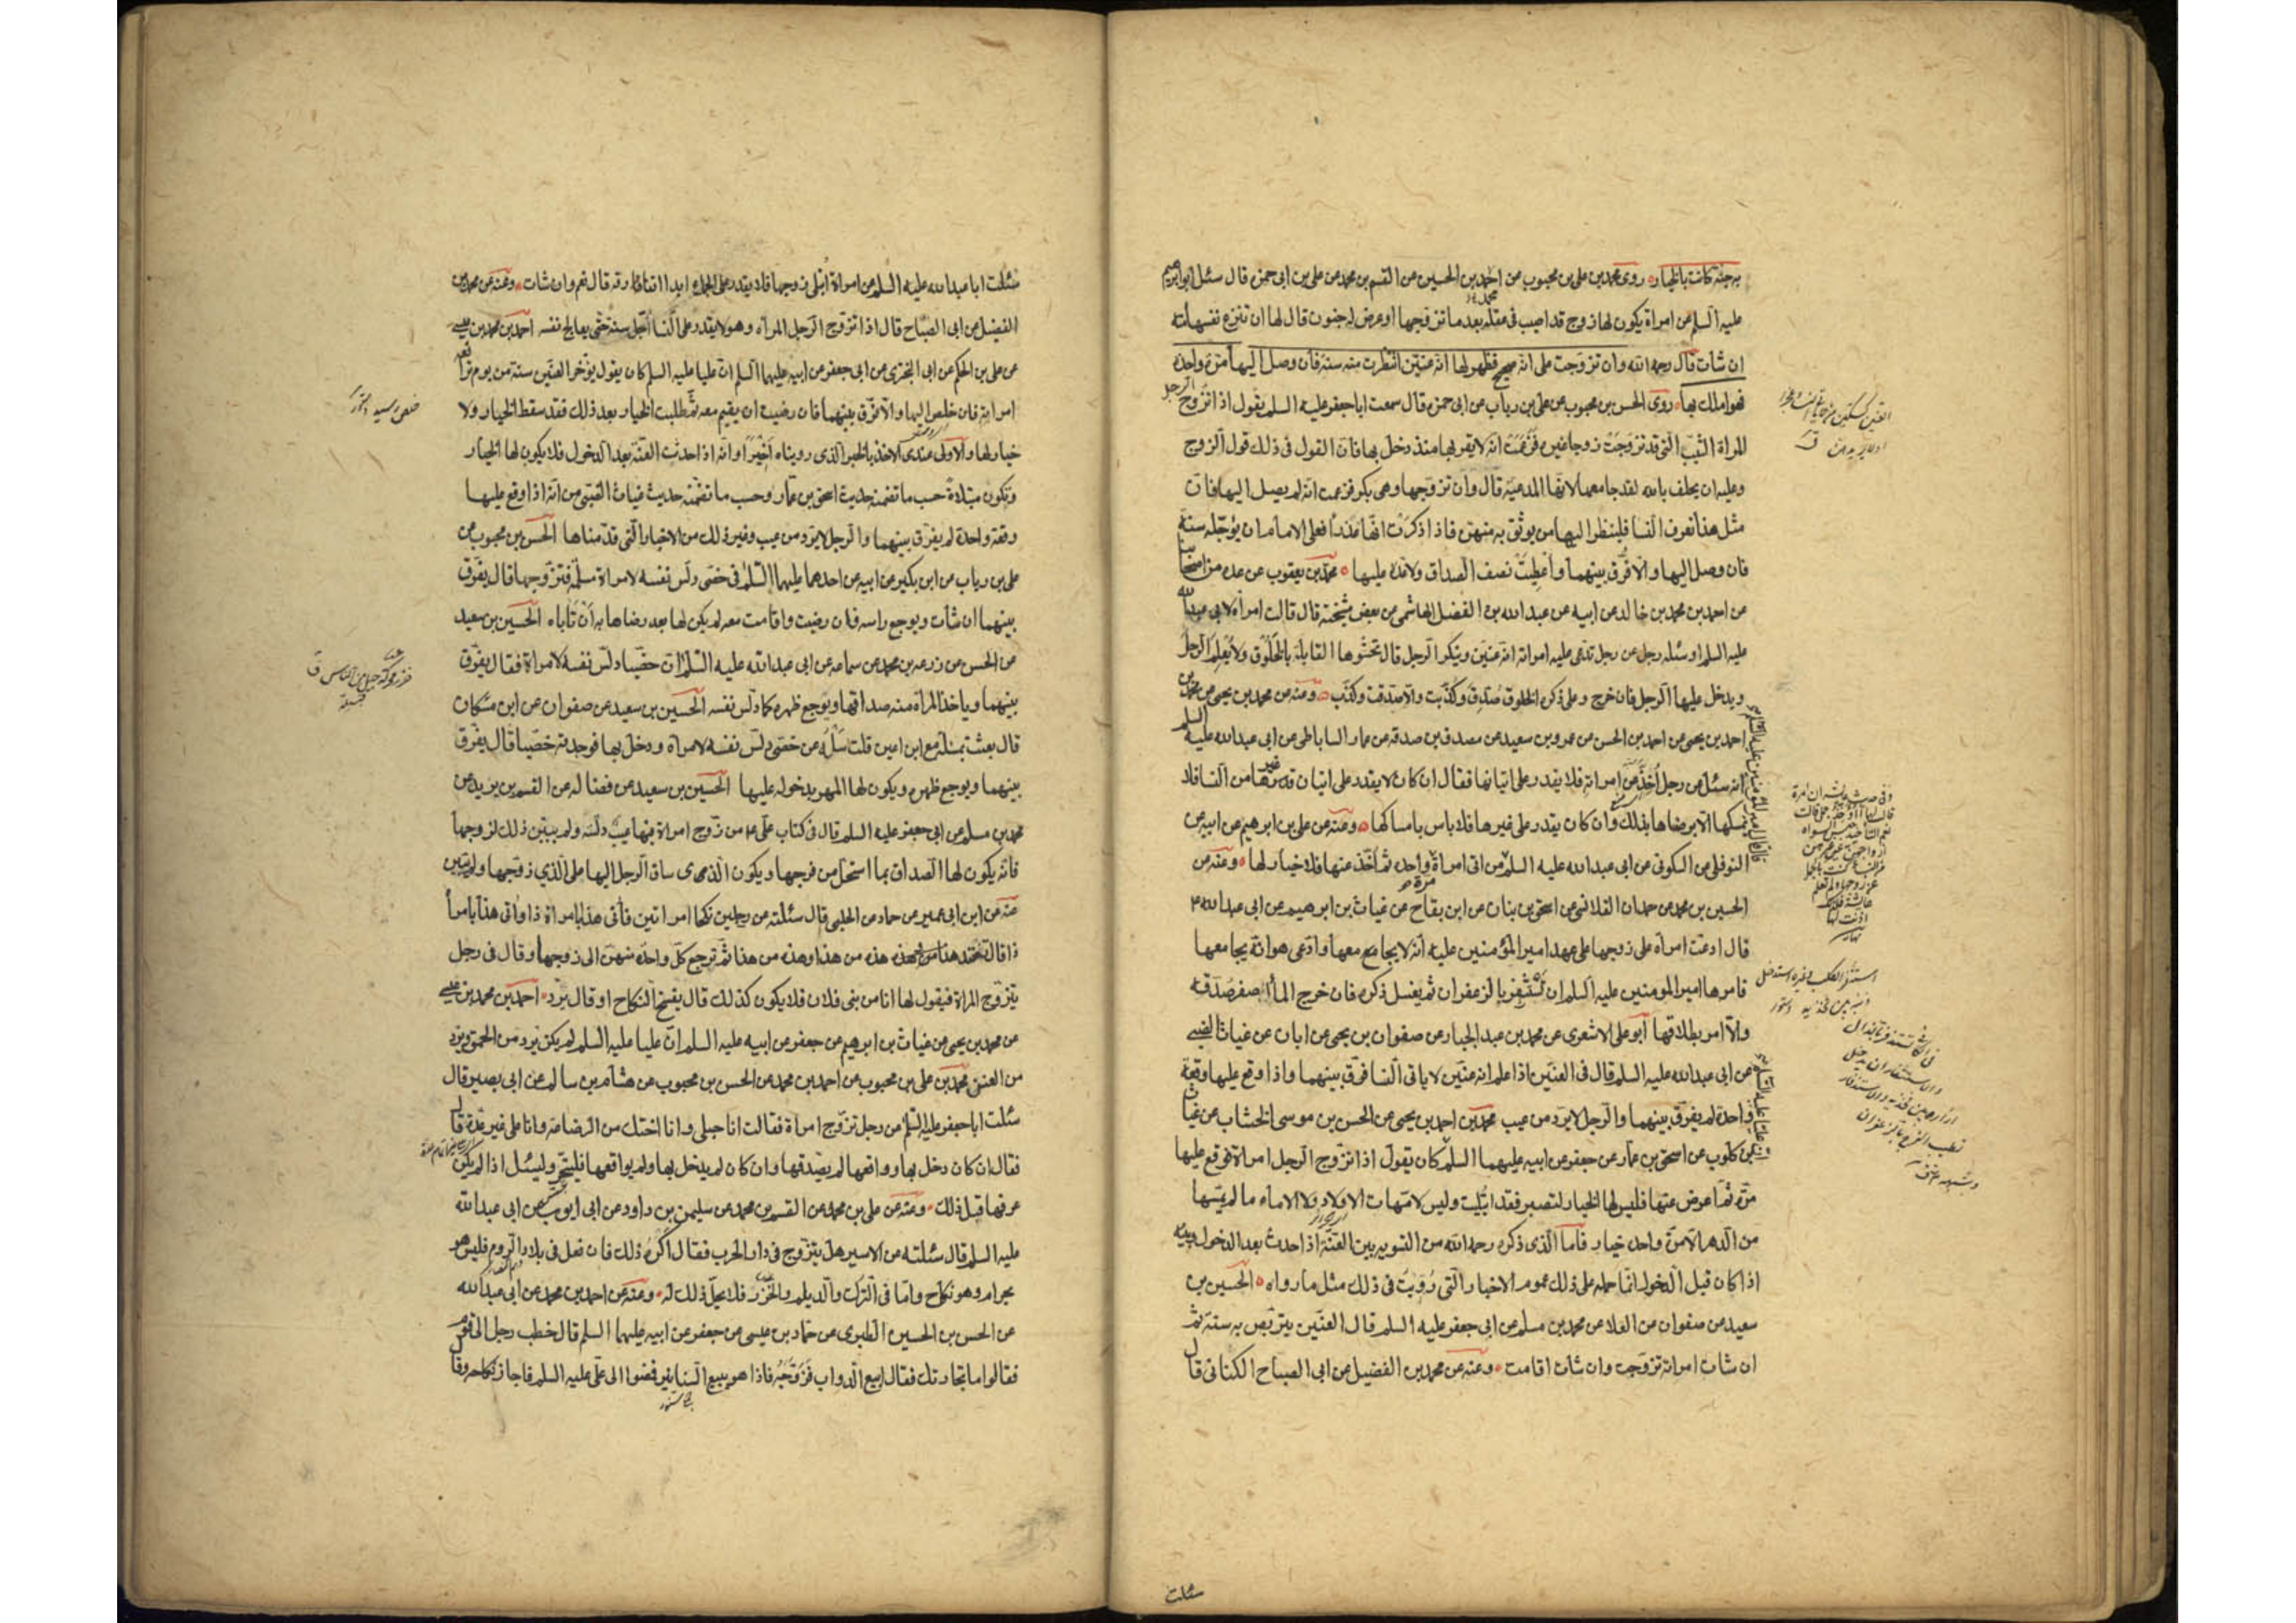 به جنة كانت بالخيار روى محمد بن على بن محبوب عن احمد بن الحسين عن القسم بن محمد عن على بن ابى حمزة قال سئل ابو ابرهيم
عليه السلم عن امراة يكون لها زوج قد اصيب فى عقله بعد ما تزوجها او عرض له جنون قال لها ان تنزع نفسها منه
ان شات قال رحمه الله وان تزوجت على انه صحيح فظهر لها انه عنين انتظرت به سنة فان وصل اليها مرة واحدة
فهو املك بها روى الحسن بن محبوب عن على بن رياب عن ابى حمزة قال سمعت ابا جعفر عليه السلم يقول اذا تزوج الرجل
المراة الثيب التى قد تزوجت زوجا غيره فزعمت انه لا يقربها منذ دخل بها فان القول فى ذلك قول الزوج
وعليه ان يحلف بالله لقد جامعها لانها المدعية قال وان تزوجها وهى بكر فزعمت انه لم يصل اليها فان
مثل هذا تعرف النسا فلينظر اليها من يوثق به منهن فاذا ذكرت انها عذرا فعلى الامام ان يوجله سنة
فان وصل اليها والا فرق بينهما واعطيت نصف الصداق ولا عدة عليها محمد بن يعقوب عن عدة من اصحابنا
عن احمد بن محمد بن خالد عن ابيه عن عبد الله بن الفضل الهاشمى عن بعض مشيخته قال قالت امراة لابى عبد الله
عليه السلم او سئله رجل عن رجل تدعى عليه امراته انه عنين وينكر الرجل قال تحشوها القابلة بالخلوق ولا يعلم الرجل
ويدخل عليها الرجل فان خرج وعلى ذكره الخلوق صدق وكذبت والا صدقت وكذب وعنه عن محمد بن يحيى عن محمد بن
احمد بن يحيى عن احمد بن الحسن عن عمرو بن سعيد عن مصدق بن صدقه عن عمار الساباطى عن ابى عبد الله عليه السلم
انه سئل عن رجل اخذ عن امراته فلا يقدر على اتيانها فقال ان كان لا يقدر على اتيان غيرها من النسا فلا
يمسكها الا برضاها بذلك وان كان يقدر على غيرها فلا باس بامساكها وعنه عن على بن ابرهيم عن ابيه عن
النوفلى عن السكونى عن ابى عبد الله عليه السلم من اتى امراة واحدة ثم اخذ عنها فلا خيار لها وعنه عن
الحسين بن محمد عن حمدان القلانسى عن اسحق بن بنان عن ابن بقاح عن غياث بن ابرهيم عن ابى عبد الله ع
قال ادعت امراة على زوجها على عهد امير المؤمنين عليه انه لا يجامعها وادعى هو انه يجامعها
فامرها امير المومنين عليه السلم ان تستثفر بالزعفران ثم يغسل ذكره فان خرج الما اصفر صدقه
والا امره بطلاقها ابو على الاشعرى عن محمد بن عبد الجبار عن صفوان بن يحيى عن ابان عن غياث الضبى
عن ابى عبد الله عليه السلم قال فى العنين اذا علم انه عنين لا ياتى النسا فرق بينهما واذا وقع عليها وقعة
واحدة لم يفرق بينهما والرجل لا يرد من عيب محمد بن احمد بن يحيى عن الحسن بن موسى الخشاب عن غياث
بن كلوب عن اسحق بن عمار عن جعفر عن ابيه عليهما السلم كان يقول اذا تزوج الرجل امراة فوقع عليها
مرة ثم اعرض عنها فليس لها الخيار لتصبر فقد ابتليت وليس لامهات الاولاد ولا الاماء ما لم يمسها
من الدهر الا مرة واحدة خيار فاما الذى ذكره رحمه الله من التسويه بين العنة اذا حدث بعد الدخول وبينه
اذا كان قبل الدخول انما حمله على ذلك عموم الاخبار التى رويت فى ذلك مثل ما رواه الحسين بن
سعيد عن صفوان عن العلا عن محمد بن مسلم عن ابى جعفر عليه السلم قال العنين يتربص به سنة ثم
ان شات امراته تزوجت وان شات اقامت وعنه عن محمد بن الفضيل عن ابى الصباح الكنانى قال
سئلت
سئلت ابا عبد الله عليه السلم عن امراة ابتلى زوجها فلا يقدر على الجماع ابدا اتفارقه قال نعم وان شات وعنه عن محمد بن
الفضيل عن ابى الصباح قال اذا تزوج الرجل المراة وهو لا يقدر على النسا اجل سنة حتى يعالج نفسه احمد بن محمد بن عيسى
عن على بن الحكم عن ابى البخترى عن ابى جعفر عن ابيه عليهما السلم ان عليا عليه السلم كان يقول يؤخر العنين سنة من يوم ترافعه
امراته فان خلص اليها والا فرق بينهما فان رضيت ان يقيم معه ثم طلبت الخيار بعد ذلك فقد سقط الخيار ولا
خيار لها والاولى عندى الاخذ بالخبر الذى رويناه اخيرا وانه اذا حدثت العنة بعد الدخول فلا يكون لها الخيار
وتكون مبتلاة حسب ما تضمنه حديث اسحق بن عمار وحسب ما تضمنه حديث غياث الضبى من انه اذا وقع عليها
وقعة واحدة لم يفرق بينهما والرجل لا يرد من عيب وغير ذلك من الاخبار التى قدمناها الحسن بن محبوب عن
على بن رياب عن ابن بكير عن ابيه عن احدهما عليهما السلم فى خصى دلس نفسه لامراة مسلمة فتزوجها قال يفرق
بينهما ان شات ويوجع راسه فان رضيت واقامت معه لم يكن لها بعد رضاها به ان تاباه الحسين بن سعيد
عن الحسن عن زرعه بن محمد عن سماعه عن ابى عبد الله عليه السلم ان خصيا دلس نفسه لامراة فقال يفرق
بينهما وياخذ المراة منه صداقها ويوجع ظهره كما دلس نفسه الحسين بن سعيد عن صفوان عن ابن مسكان
قال بعثت بمسئلة مع ابن اعين قلت سئله عن خصى دلس نفسه لامراة ودخل بها فوجدته خصيا قال يفرق
بينهما ويوجع ظهره ويكون لها المهر بدخوله عليها الحسين بن سعيد عن فضاله عن القسم بن بريد عن
محمد بن مسلم عن ابى جعفر عليه السلم قال فى كتاب على ع من زوج امراة فيها عيب دلسه ولم يبين ذلك لزوجها
فانه يكون لها الصداق بما استحل من فرجها ويكون الذى ساق الرجل اليها على الذي زوجها ولم يبين
عنه عن ابن ابى عمير عن حماد عن الحلبى قال سئلته عن رجلين نكحا امراتين فاتى هذا بامراة ذا واتى هذا بامراة
ذا قال تعتد هذه من هذا وهذه من هذا ثم ترجع كل واحدة منهن الى زوجها وقال فى رجل
يتزوج المراة فيقول لها انا من بنى فلان فلا يكون كذلك قال يفسخ النكاح او قال يرد احمد بن محمد بن عيسى
عن محمد بن يحيى عن غياث بن ابرهيم عن جعفر عن ابيه عليه السلم ان عليا عليه السلم لم يكن يرد من الحمق ويرد
من العنن محمد بن على بن محبوب عن احمد بن محمد عن الحسن بن محبوب عن هشام بن سالم عن ابى بصير قال
سئلت ابا جعفر عليه السلم عن رجل تزوج امراة فقالت انا حبلى وانا اختك من الرضاعة وانا على غير عدة قال
فقال ان كان دخل بها وواقعها لم يصدقها وان كان لم يدخل بها ولم يواقعها فليتحر وليسئل اذا لم يكن
عرفها قبل ذلك وعنه عن على بن محمد عن القسم بن محمد عن سليمن بن داود عن ابى ايوب عن ابى عبد الله
عليه السلم قال سئلته عن الاسير هل يتزوج فى دار الحرب فقال اكره ذلك فان فعل فى بلاد الروم فليس هو
بحرام وهو نكاح واما فى الترك والديلم والخزر فلا يحل ذلك له وعنه عن احمد بن محمد عن ابى عبد الله
عن الحسن بن الحسين الطبرى عن حماد بن عيسى عن جعفر عن ابيه عليهما السلم قال خطب رجل الى قوم
فقالوا ما تجارتك فقال ابيع الدواب فزوجوه فاذا هو يبيع السنانير فمضوا الى على عليه السلم فاجاز نكاحه وقال